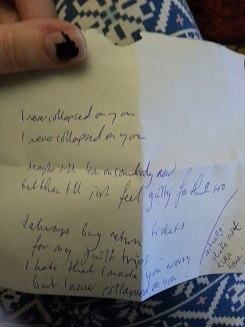 I never collapsed on you
I never collapsed on you
Maybe I'll lean on somebody new
but then I'll just feel guilty for that too
I always buy return tickets
for my guilt trips
I hate that I made you worry
but I never collapsed on you
actually
that's not
true